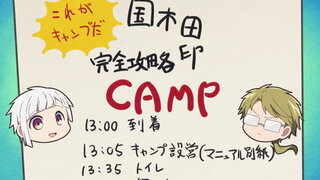 これが
キャンプだ
国木田
完全攻略印
CAMP
13:00 到着
13:05 キャンプ設営(マニュアル別紙)
13:35 トイレ